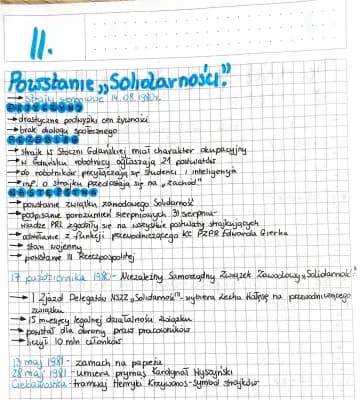 11.
Powstanie „Solidarności."
→ Strajki sierpniowe 14.08.1980r.
PRZYCZYNY
→ drastyczne podwyżki cen żywności
→ brak dialogu społecznego
PRZEBIEG
→ strajk w Stoczni Gdańskiej miał charakter okupacyjny
→ w Gdańsku robotnicy ogłaszają 21 postulatów
→ do robotników przyłączają się studenci i inteligencja
→ inf. o strajku przedostają się na „zachód"
NASTĘPSTWA
→ powstanie związku zawodowego Solidarność
→ podpisanie porozumień sierpniowych 31 sierpnia-
władze PRL zgodziły się na wszystkie postulaty strajkujących
→ odwołanie z funkcji przewodniczącego KC PZPR Edwarda Gierka
→ stan wojenny
→ powstanie III Rzeczpospolitej
17 października 1980- Niezależny Samorządny Związek Zawodowy „Solidarność"
→ 1 Zjazd Delegatów NSZZ „Solidarność" - wybiera Lecha Wałęsę na przewodniczącego
związku
→ 15 miesięcy legalnej działalności związku
→ powstał dla obrony praw pracowników
→ liczył 10 mln członków
13 maj 1981 - zamach na papieża
28 maj 1981 - umiera prymas Kardynał Wyszyński
Ciekawostka - tramwaj Henryki Krzywonos - symbol strajków